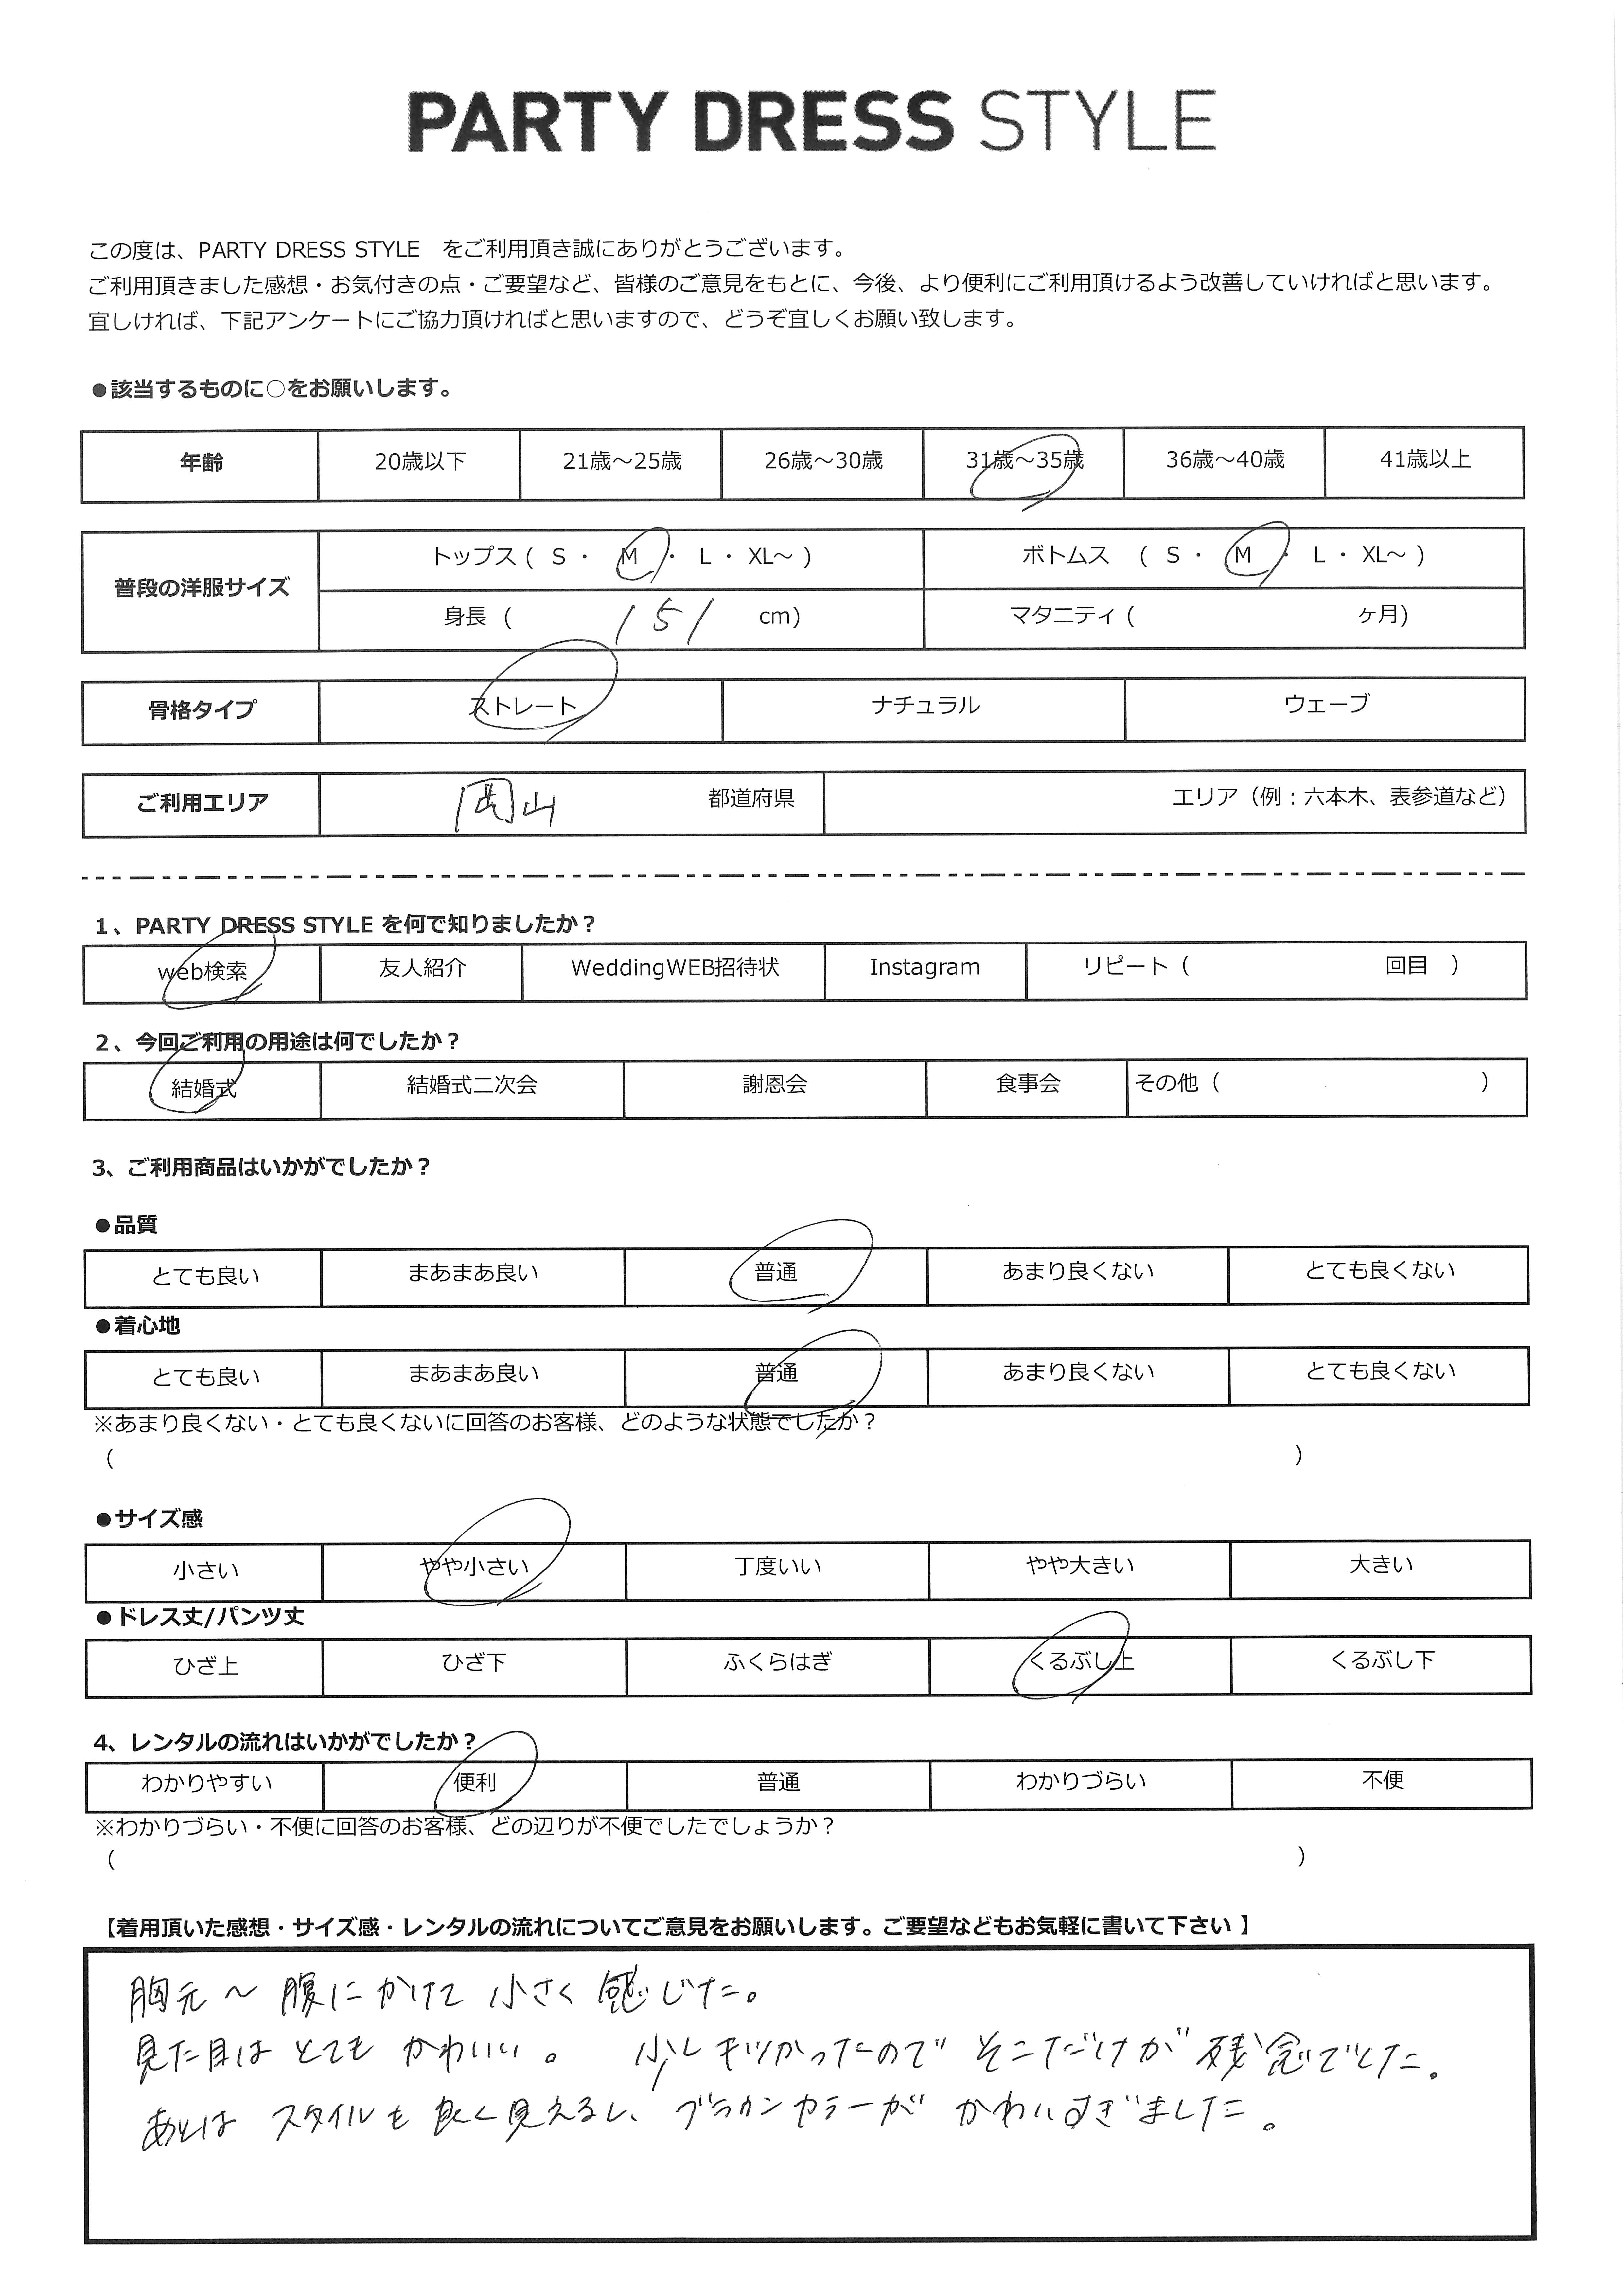 PARTY DRESS STYLE
この度は、PARTY DRESS STYLE　をご利用頂き誠にありがとうございます。
ご利用頂きました感想・お気付きの点・ご要望など、皆様のご意見をもとに、今後、より便利にご利用頂けるよう改善していければと思います。
宜しければ、下記アンケートにご協力頂ければと思いますので、どうぞ宜しくお願い致します。
●該当するものに○をお願いします。
年齢 20歳以下 21歳～25歳 26歳～30歳 31歳～35歳 36歳～40歳 41歳以上
普段の洋服サイズ トップス ( S ・ M ・ L ・ XL～ ) ボトムス ( S ・ M ・ L ・ XL～ )
身長 ( 151 cm) マタニティ ( ヶ月)
骨格タイプ ストレート ナチュラル ウェーブ
ご利用エリア 岡山 都道府県 エリア（例：六本木、表参道など）
1、PARTY DRESS STYLE を何で知りましたか？
web検索 友人紹介 WeddingWEB招待状 Instagram リピート（ 回目 ）
2、今回ご利用の用途は何でしたか？
結婚式 結婚式二次会 謝恩会 食事会 その他（ ）
3、ご利用商品はいかがでしたか？
●品質
とても良い まあまあ良い 普通 あまり良くない とても良くない
●着心地
とても良い まあまあ良い 普通 あまり良くない とても良くない
※あまり良くない・とても良くないに回答のお客様、どのような状態でしたか？
（ ）
●サイズ感
小さい やや小さい 丁度いい やや大きい 大きい
●ドレス丈/パンツ丈
ひざ上 ひざ下 ふくらはぎ くるぶし上 くるぶし下
4、レンタルの流れはいかがでしたか？
わかりやすい 便利 普通 わかりづらい 不便
※わかりづらい・不便に回答のお客様、どの辺りが不便でしたでしょうか？
（ ）
【着用頂いた感想・サイズ感・レンタルの流れについてご意見をお願いします。ご要望などもお気軽に書いて下さい 】
胸元～腹にかけて小さく感じた。
見た目はとてもかわいい。 少しキツかったのでそこだけが残念でした。
あとはスタイルも良く見えるし、ブラウンカラーがかわいすぎました。